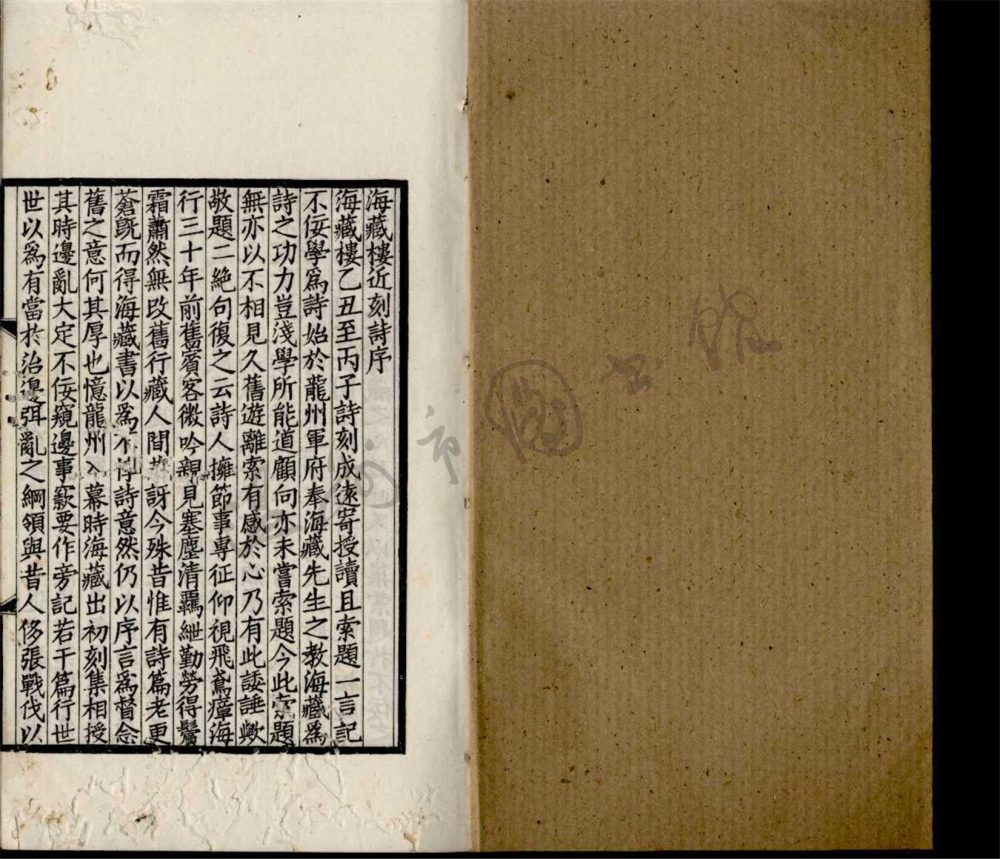 海藏樓近刻詩序
海藏樓乙丑至丙子詩刻成遠寄授讀且索題一言記
不佞學為詩始於龍州軍府奉海藏先生之教海藏為
詩之功力豈淺學所能道顧向亦未嘗索題今此索題
無亦以不相見久舊遊離索有感於心乃有此諉諈歟
敬題二絕句復之云詩人擁節事專征仰視飛鳶瘴海
行三十年前舊賓客微吟親見塞塵清羈紲勤勞得鬢
霜蕭然無改舊行藏人間訝今殊昔惟有詩篇老更
蒼既而得海藏書以為不詩意然仍以序言為督念
舊之意何其厚也憶龍州入幕時海藏出初刻集相授
其時邊亂大定不佞窺邊事窾要作旁記若干篇行世
世以爲有當於治邊弭亂之綱領與昔人侈張戰伐以
市
圖
書
館